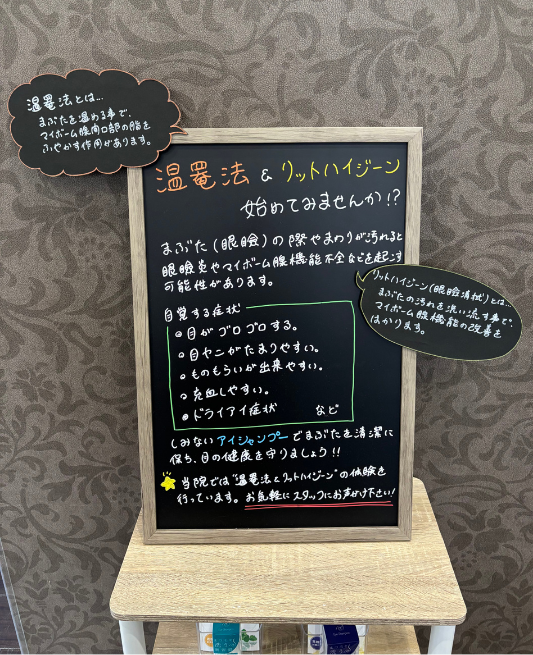 温罨法とは…
まぶたを温める事で、
マイボーム腺開口部の脂を
ふやかす作用があります。
温罨法 & リットハイジーン
始めてみませんか!?
まぶた(眼瞼)の際やまわりが汚れると
眼瞼炎やマイボーム腺機能不全などを起こす
可能性があります。
リットハイジーン(眼瞼清拭)とは…
まぶたの汚れを洗い流す事で、
マイボーム腺機能の改善を
はかります。
自覚する症状
目がゴロゴロする。
目ヤニがたまりやすい。
ものもらいが出来やすい。
充血しやすい。
ドライアイ症状 など
しみないアイシャンプーでまぶたを清潔に
保ち、目の健康を守りましょう!!
当院では"温罨法&リットハイジーン"の体験を
行っています。お気軽にスタッフにお声がけ下さい!